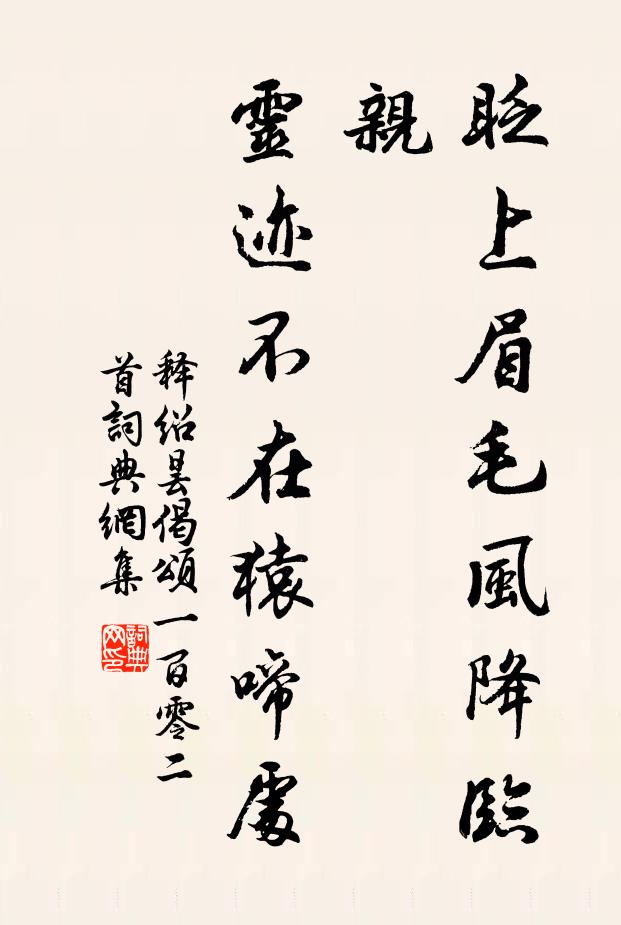 眨上眉毛風降臨
親
靈迹不在猿啼處
释绍昙偈頌一百零二
首詞典網集
詞典
网印